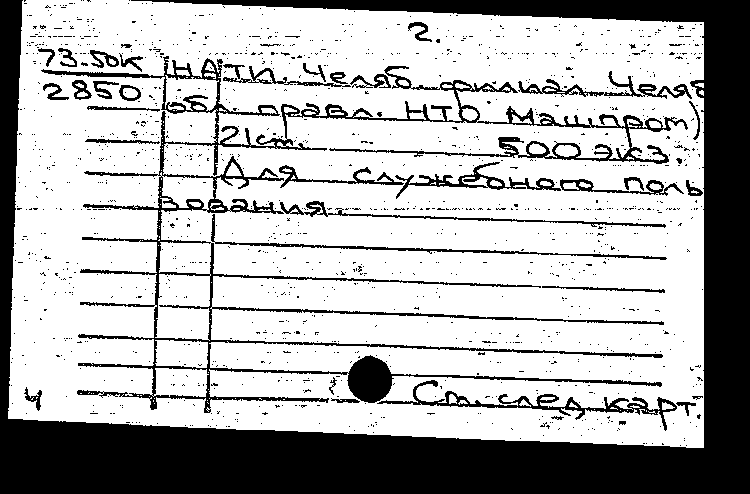 2.
73-50К НАТИ. Челяб. филиал. Челяб
2850 обл. правл. НТО Машпром)
21 см. 500 экз.
Для служебного поль
зования.
ч См. след. карт.